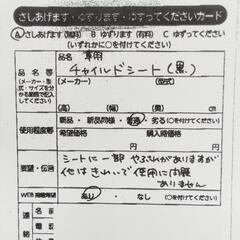 さしあげます・ゆずります・ゆずってくださいカード
Ⓐ さしあげます(無料) B ゆずります(有料) C ゆずってください
(いずれかに○を付けてください)
品名等
(メーカー・型式・サイズを分かる範囲で記入してください)
品名 車用
チャイルドシート(黒)
(メーカー) (型式)
(高) (幅) (奥) cm
使用程度等
新品・新品同様・普通・劣る(○を付けてください)
希望価格 購入時価格
要望・伝言
シートに一部やぶれがありますが
他はきれいで使用に問題
ありません
WEB掲載希望
あり・なし(○を付けてください)
連
絡
名前